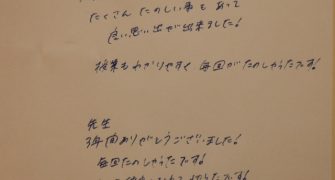 たくさん たのしい事も あって
良い思い出が出来ました!
授業もわかりやすく 毎回がたのしかったです!
先生
3年間ありがとうございました!
毎回たのしかったです!